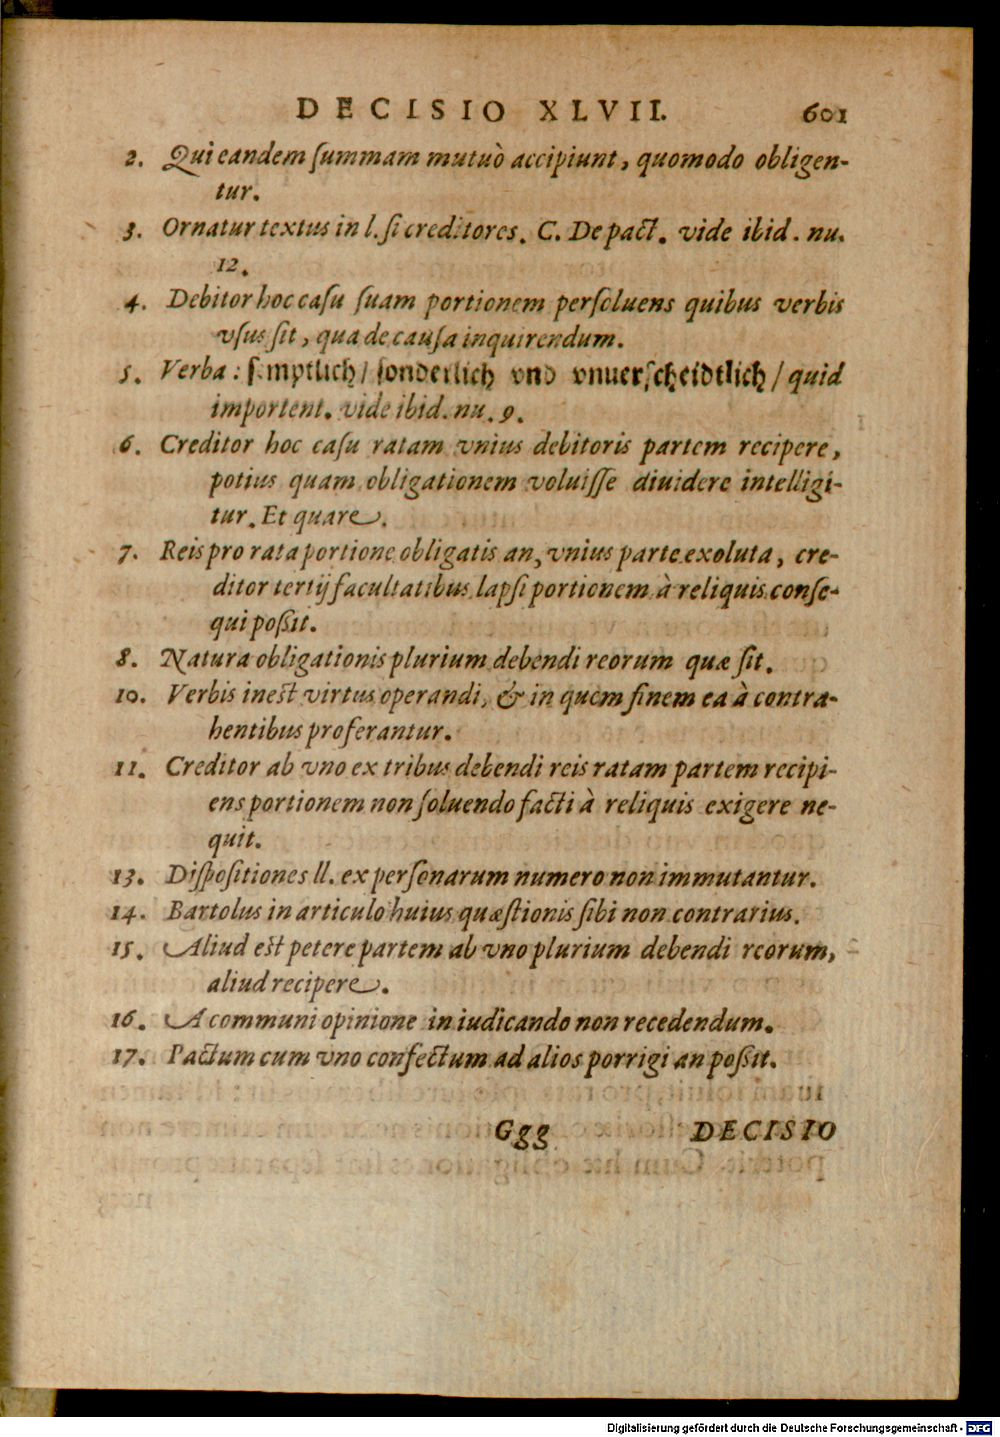 DECISIO XLVII. 601
2. Qui eandem ſummam mutuò accipiunt, quomodo obligen-
tur.
3. Ornatur textus in l. ſi creditores. C. De pact. vide ibid. nu.
12.
4. Debitor hoc caſu ſuam portionem perſoluens quibus verbis
vſus ſit, qua de cauſa inquirendum.
5. Verba: ſamptlich / ſonderlich vnd vnuerſcheidtlich / quid
importent. vide ibid. nu. 9.
6. Creditor hoc caſu ratam vnius debitoris partem recipere,
potius quam obligationem voluiſſe diuidere intelligi-
tur. Et quare.
7. Reis pro rata portione obligatis an, vnius parte exoluta, cre-
ditor tertij facultatibus lapſi portionem à reliquis conſe-
qui poßit.
8. Natura obligationis plurium debendi reorum quæ ſit.
10. Verbis inest virtus operandi, & in quem finem ea à contra-
hentibus proferantur.
11. Creditor ab vno ex tribus debendi reis ratam partem recipi-
ens portionem non ſoluendo facti à reliquis exigere ne-
quit.
13. Diſpoſitiones ll. ex perſonarum numero non immutantur.
14. Bartolus in articulo huius quæſtionis ſibi non contrarius.
15. Aliud est petere partem ab vno plurium debendi reorum,
aliud recipere.
16. A communi opinione in iudicando non recedendum.
17. Pactum cum vno confectum ad alios porrigi an poßit.
Ggg DECISIO
Digitalisierung gefördert durch die Deutsche Forschungsgemeinschaft - DFG